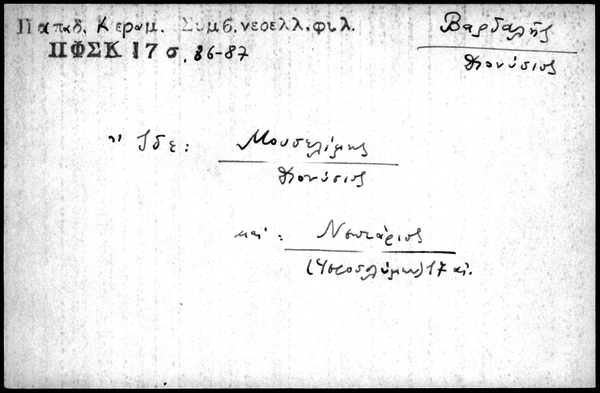 Παπαδ. Κεραμ. Συμβ. νεοελλ. φιλ.
ΠΦΣΚ 17 σ. 86-87
Βαρδαλῆς
Διονύσιος
Ἴδε: Μουσελίμης
Διονύσιος
καὶ: Νεκτάριος
(Ἱεροσολύμων) 17 αἰ.